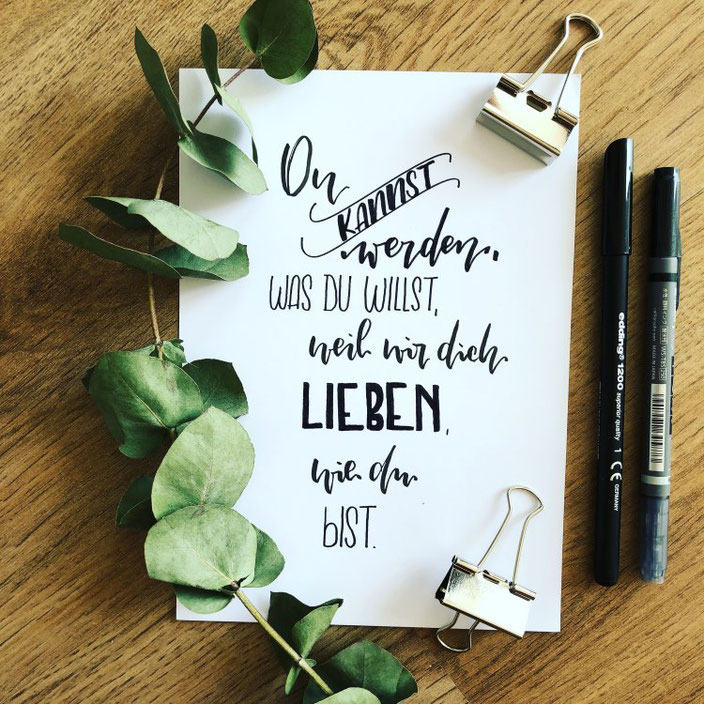 Du
KANNST
werden,
WAS DU WILLST,
weil wir dich
LIEBEN,
wie du
bIST.
edding® 1200 superior quality 1 CE GERMANY